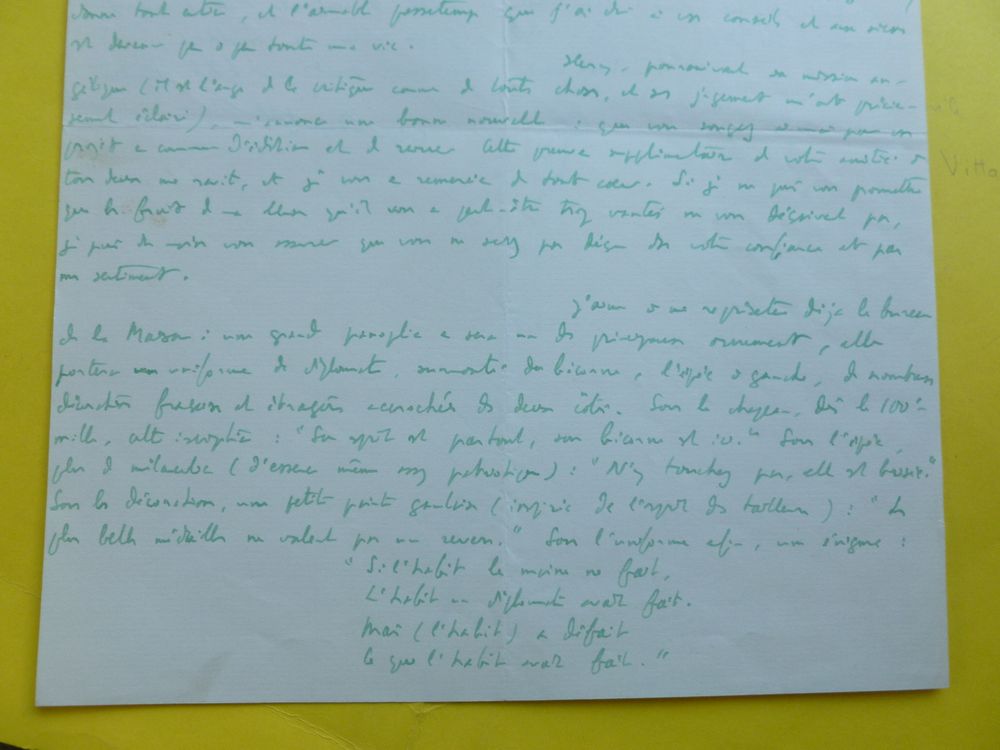 donné tout entier, et l'aimable passetemps que j'ai dû à vos conseils et aux siens
est devenu peu à peu toute ma vie.
Henry, poursuivant sa mission an-
gélique (il est l'ange de la critique comme de toutes choses, et son jugement m'est précieu-
sement éclairé), m'annonce une bonne nouvelle : que vous songez à moi pour un
projet commun d'édition et de revue. Cette preuve supplémentaire de votre amitié à
tous deux me ravit, et je vous en remercie de tout cœur. Si je ne puis vous promettre
que les fruits de ma Muse qu'il vous a peut-être trop vantés ne vous déçoivent pas,
je puis du moins vous assurer que vous ne serez pas déçu dans votre confiance et par
mes sentiments.
J'aime à me représenter déjà le bureau
de la Maison : une grande panoplie en sera un des principaux ornements, elle
portera un uniforme de diplomate, surmonté du bicorne, l'épée à gauche, de nombreuses
décorations françaises et étrangères accrochées des deux côtés. Sous le chapeau, dès le 100e
mille, cette inscription : "Son esprit est partout, son bicorne est ici." Sous l'épée,
plus de mélancolie (d'essence même assez patriotique) : "N'y touchez pas, elle est brisée."
Sous les décorations, une petite pointe gauloise (inspirée de l'esprit des tailleurs) : "Les
plus belles médailles ne valent pas un revers." Sous l'uniforme enfin, une énigme :
"Si l'habit le moine ne fait,
L'habit un diplomate avait fait.
Mais (l'habit) a défait
ce que l'habit avait fait."